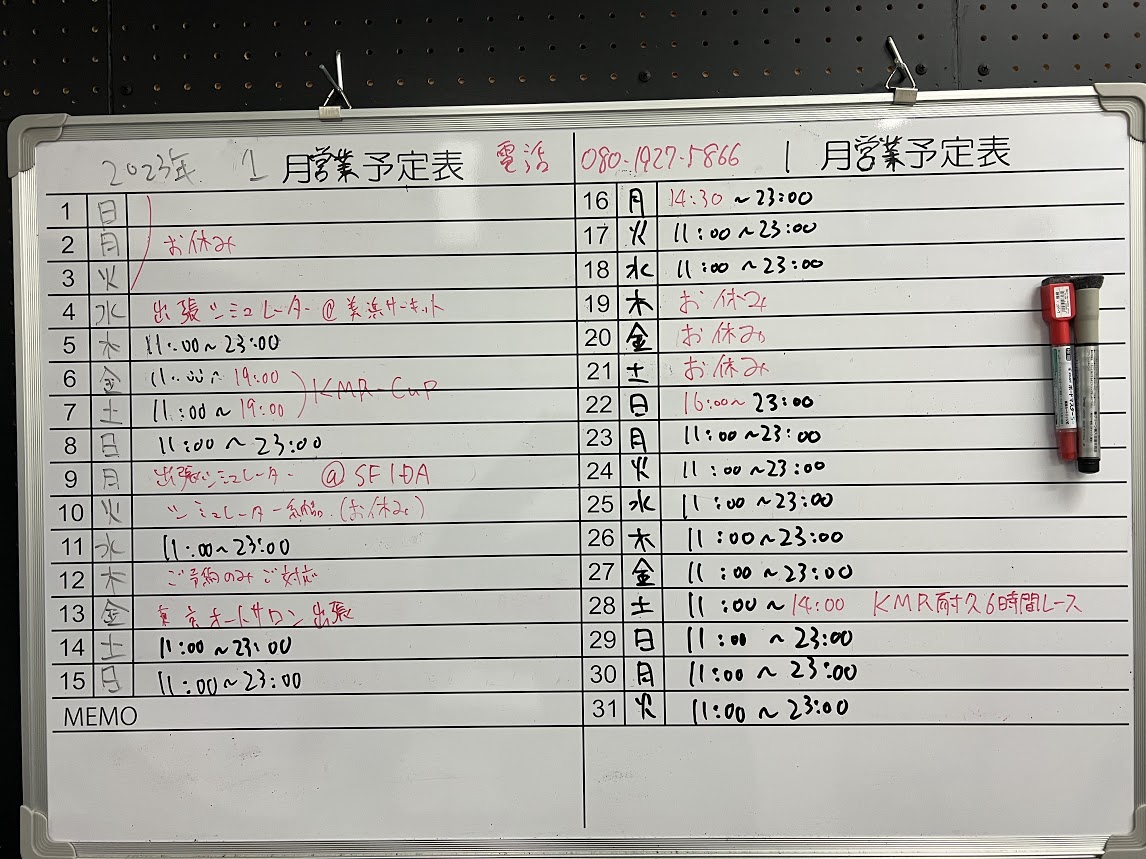 2023年 1 月営業予定表 電話 080-1927-5866 1 月営業予定表
1 日
2 月 お休み
3 火
4 水 出張シミュレーター @ 美浜サーキット
5 木 11:00~23:00
6 金 11:00~19:00
7 土 11:00~19:00 KMR-CUP
8 日 11:00~23:00
9 月 出張シミュレーター @SEIDA
10 火 シミュレーター (お休み)
11 水 11:00~23:00
12 木 ご予約のみご対応
13 金 東京オートサロン出張
14 土 11:00~23:00
15 日 11:00~23:00
MEMO
16 月 14:30~23:00
17 火 11:00~23:00
18 水 11:00~23:00
19 木 お休み
20 金 お休み
21 土 お休み
22 日 16:00~23:00
23 月 11:00~23:00
24 火 11:00~23:00
25 水 11:00~23:00
26 木 11:00~23:00
27 金 11:00~23:00
28 土 11:00~14:00 KMR耐久6時間レース
29 日 11:00~23:00
30 月 11:00~23:00
31 火 11:00~23:00